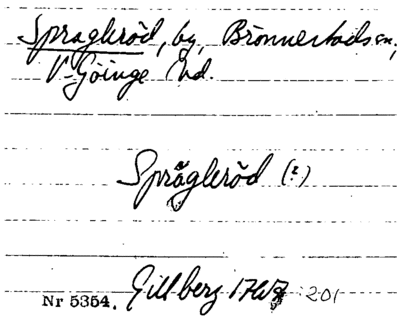 Spragleröd, by, Brönnestads sn,
V. Göinge hd.
Språgleröd (?)
Nr 5354. Gillberg 201